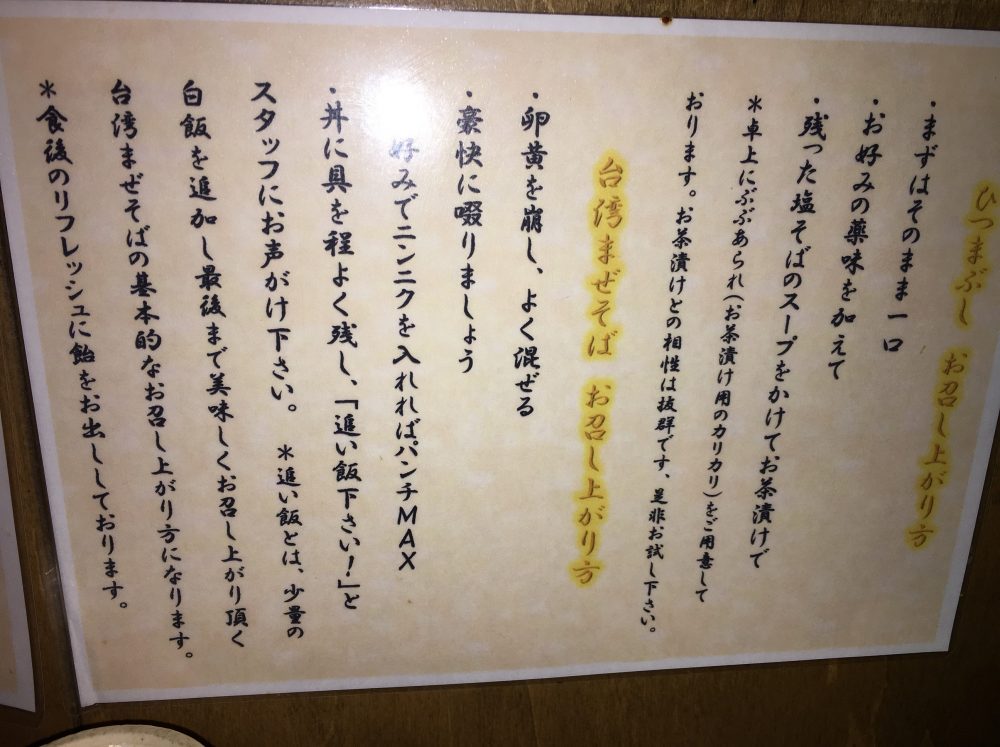 ひつまぶし お召し上がり方
・まずはそのまま一口
・お好みの薬味を加えて
・残った塩そばのスープをかけてお茶漬けで
＊卓上にぶぶあられ(お茶漬け用のカリカリ)をご用意して
おります。お茶漬けとの相性は抜群です、是非お試し下さい。
台湾まぜそば お召し上がり方
・卵黄を崩し、よく混ぜる
・豪快に啜りましょう
好みでニンニクを入れればパンチMAX
・丼に具を程よく残し、「追い飯下さい！」と
スタッフにお声がけ下さい。 ＊追い飯とは、少量の
白飯を追加し最後まで美味しくお召し上がり頂く
台湾まぜそばの基本的なお召し上がり方になります。
＊食後のリフレッシュに飴をお出ししております。